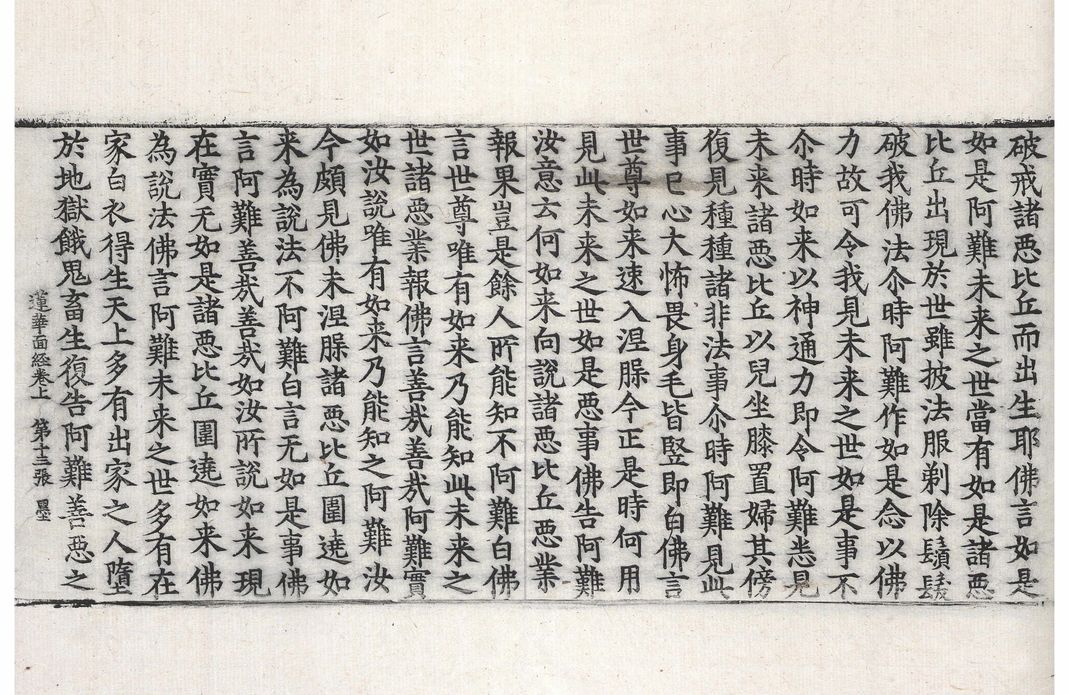 破戒諸悪比丘而出生耶佛言如是
如是阿難未来之世當有如是諸悪
比丘出現於世雖披法服剃除鬚髮
破我佛法尒時阿難作如是念以佛
力故可令我見未来之世如是事不
尒時如来以神通力即令阿難悉見
未来諸悪比丘以兒坐膝置婦其傍
復見種種諸非法事尒時阿難見此
事已心大怖畏身毛皆竪即白佛言
世尊如来速入涅槃今正是時何用
見此未来之世如是悪事佛告阿難
汝意云何如来向說諸悪比丘悪業
報果豈是餘人所能知不阿難白佛
言世尊唯有如来乃能知此未来之
世諸悪業報佛言善哉善哉阿難實
如汝說唯有如来乃能知之阿難汝
今頗見佛未涅槃諸悪比丘圍遶如
来為說法不阿難白言无如是事佛
言阿難善哉善哉如汝所說如来現
在實无如是諸悪比丘圍遶如来佛
為說法佛言阿難未来之世多有在
家白衣得生天上多有出家之人墮
於地獄餓鬼畜生復告阿難善悪之
蓮華面經卷上 第十三張 墨